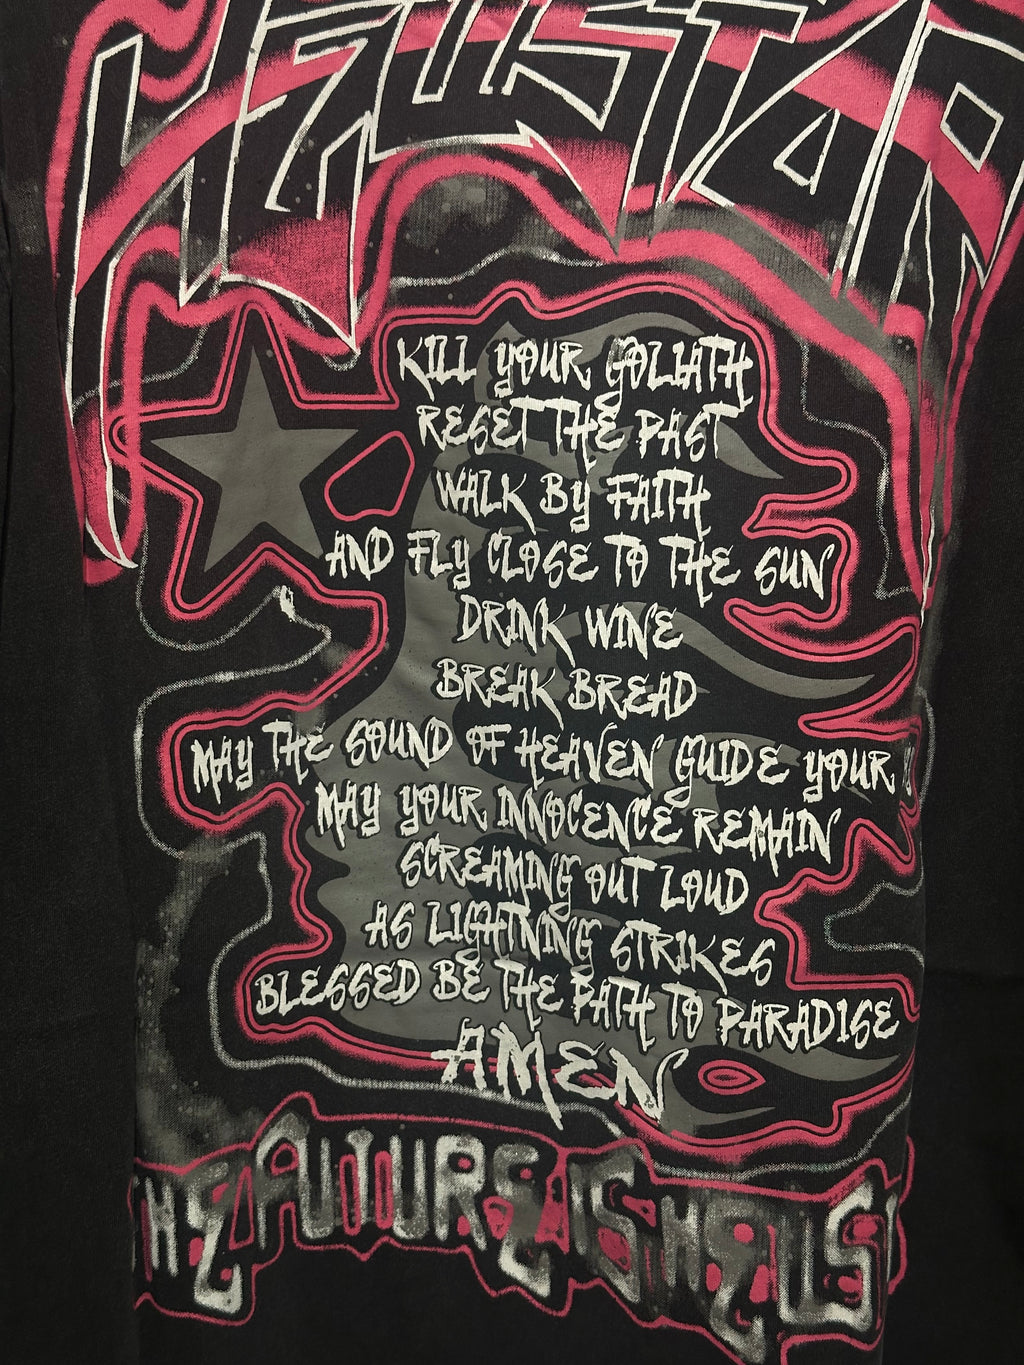 HELLSTAR
KILL YOUR GOLIATH
RESET THE PAST
WALK BY FAITH
AND FLY CLOSE TO THE SUN
DRINK WINE
BREAK BREAD
MAY THE SOUND OF HEAVEN GUIDE YOUR
MAY YOUR INNOCENCE REMAIN
SCREAMING OUT LOUD
AS LIGHTNING STRIKES
BLESSED BE THE PATH TO PARADISE
AMEN
THE FUTURE IS